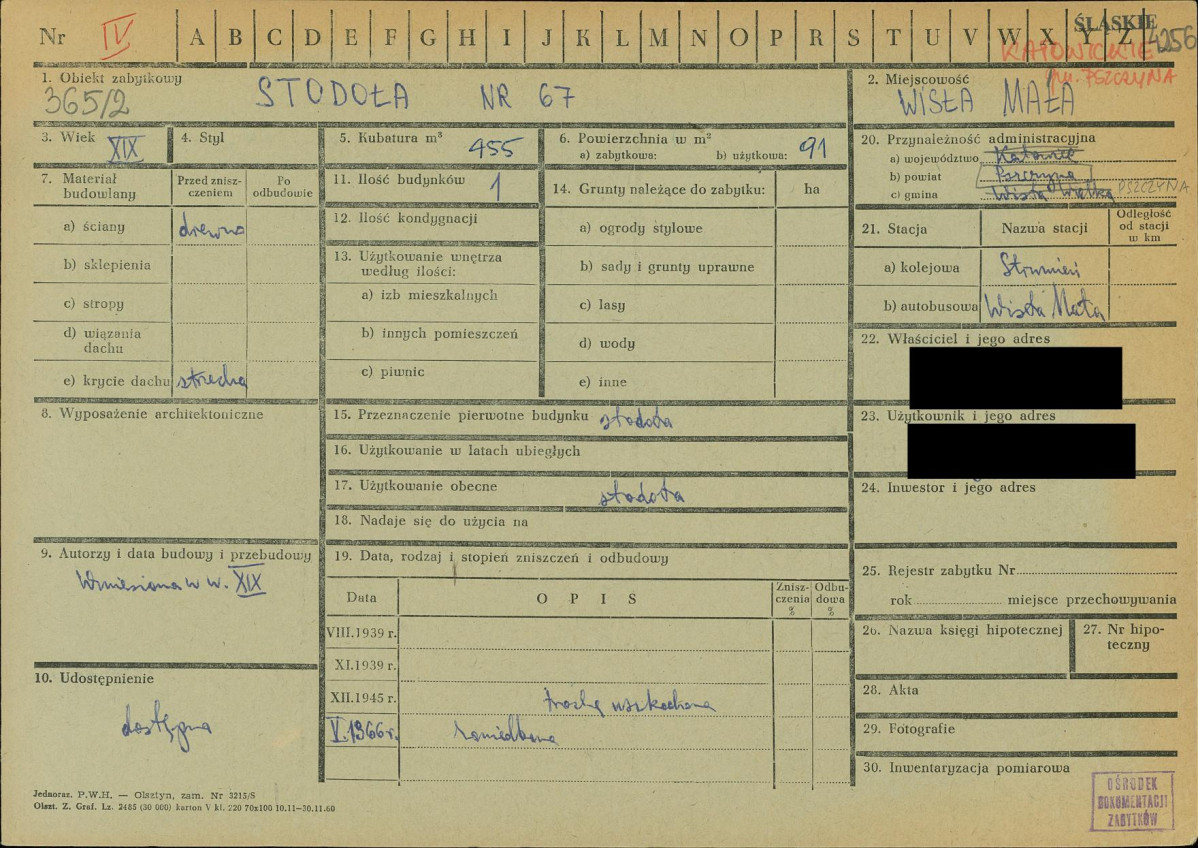 Nr IV A B C D E F G H I J K L M N O P R S T U V W X Y Z 4256
ŚLĄSKIE
KATOWICKIE
gm. PSZCZYNA
1. Obiekt zabytkowy
365/2 STODOŁA NR 67
2. Miejscowość
WISŁA MAŁA
3. Wiek XIX
4. Styl
5. Kubatura m³ 455
6. Powierzchnia w m²
a) zabytkowa: b) użytkowa: 91
7. Materiał budowlany
Przed zniszczeniem
Po odbudowie
a) ściany drewno
b) sklepienia
c) stropy
d) wiązania dachu
e) krycie dachu strzecha
8. Wyposażenie architektoniczne
9. Autorzy i data budowy i przebudowy
Wzniesiona w w. XIX
10. Udostępnienie
dostępna
11. Ilość budynków 1
12. Ilość kondygnacji
13. Użytkowanie wnętrza według ilości:
a) izb mieszkalnych
b) innych pomieszczeń
c) piwnic
14. Grunty należące do zabytku: ha
a) ogrody stylowe
b) sady i grunty uprawne
c) lasy
d) wody
e) inne
15. Przeznaczenie pierwotne budynku stodoła
16. Użytkowanie w latach ubiegłych
17. Użytkowanie obecne stodoła
18. Nadaje się do użycia na
19. Data, rodzaj i stopień zniszczeń i odbudowy
Data OPIS Zniszczenia % Odbudowa %
VIII.1939 r.
XI.1939 r.
XII.1945 r. trochę uszkodzona
V.1966 r. zaniedbana
20. Przynależność administracyjna
a) województwo Katowice
b) powiat Pszczyna
c) gmina Wisła Wielka PSZCZYNA
21. Stacja Nazwa stacji Odległość od stacji w km
a) kolejowa Strumień
b) autobusowa Wisła Mała
22. Właściciel i jego adres
23. Użytkownik i jego adres
24. Inwestor i jego adres
25. Rejestr zabytku Nr
rok miejsce przechowywania
26. Nazwa księgi hipotecznej
27. Nr hipoteczny
28. Akta
29. Fotografie
30. Inwentaryzacja pomiarowa
OŚRODEK
DOKUMENTACJI
ZABYTKÓW
Jednoraz. P.W.H. — Olsztyn, zam. Nr 3215/S
Olszt. Z. Graf. Lz. 2485 (30 000) karton V kl. 220 70x100 10.11—30.11.60